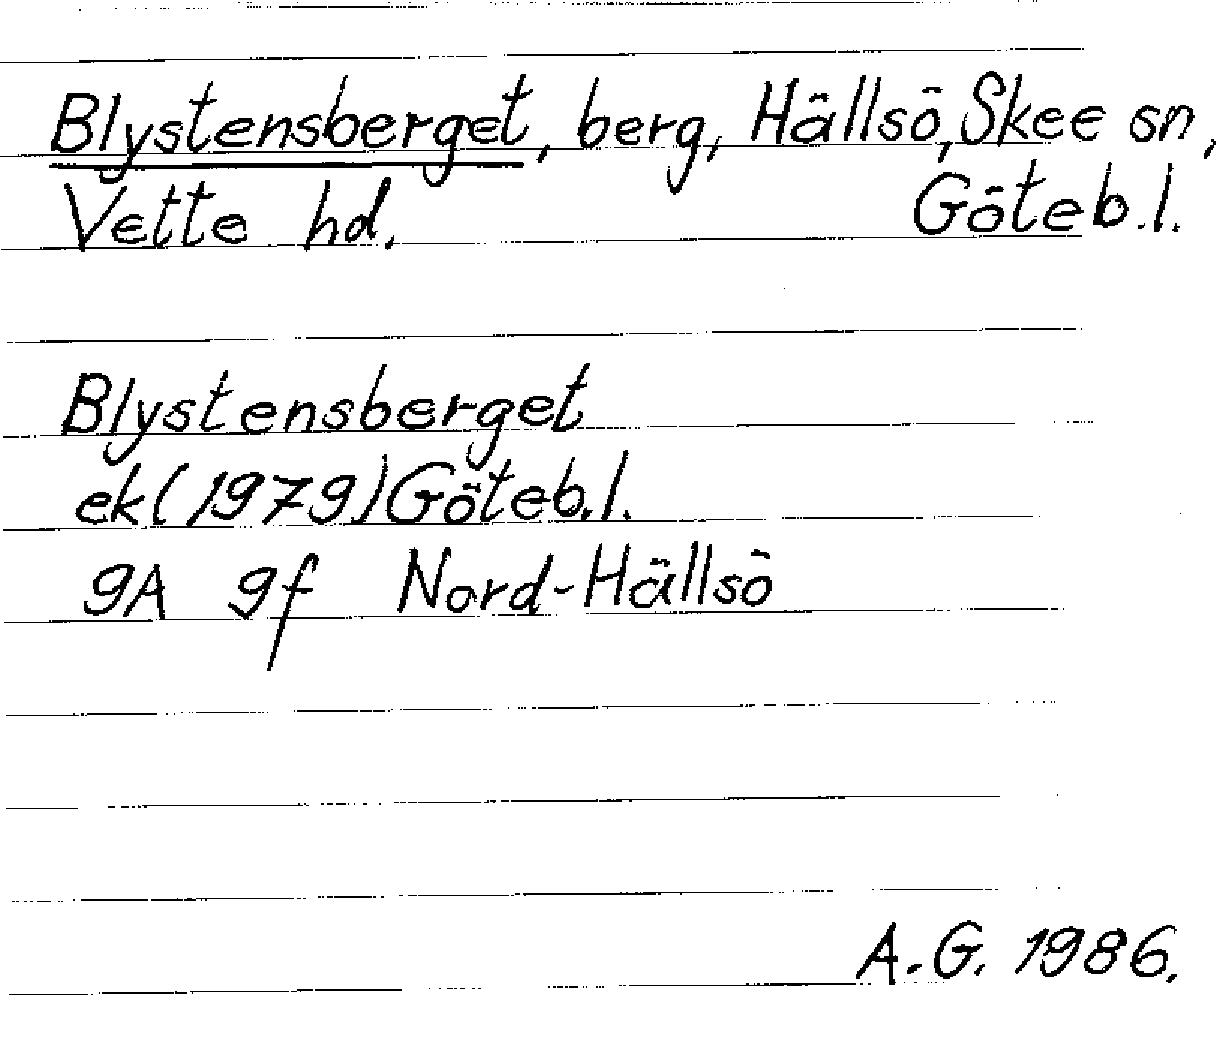 Blystensberget, berg, Hällsö, Skee sn,
Vette hd. Göteb.l.
Blystensberget
ek(1979)Göteb.l.
9A 9f Nord-Hällsö
A.G. 1986.